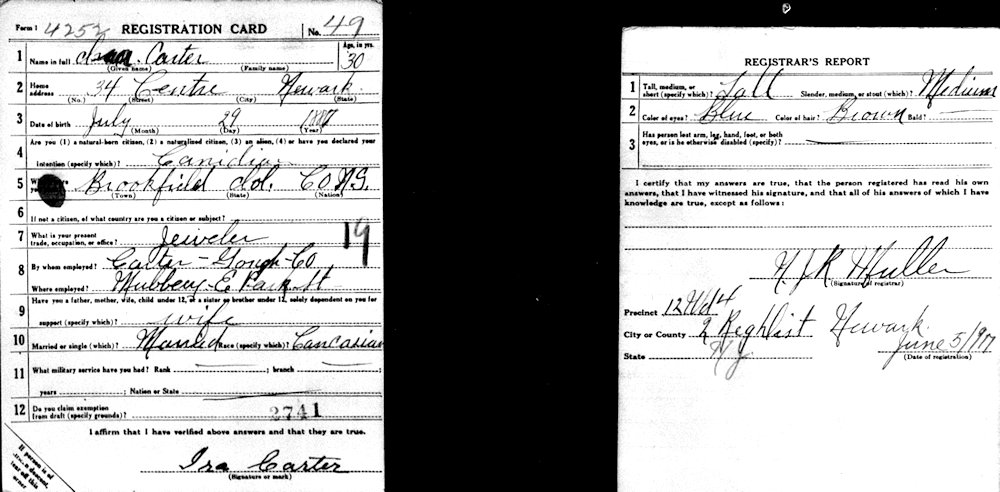 Form 1 4252 REGISTRATION CARD No. 49
1 Name in full Carter Age, in yrs. 30
(Given name) (Family name)
2 Home address 34 Centre Newark
(No.) (Street) (City) (State)
3 Date of birth July 29
(Month) (Day) (Year)
4 Are you (1) a natural-born citizen, (2) a naturalized citizen, (3) an alien, (4) or have you declared your
intention (specify which)? Canidian
5 Brookfield Col. Co N.S.
(Town) (State) (Nation)
6 If not a citizen, of what country are you a citizen or subject?
7 What is your present trade, occupation, or office? Jeweler 19
8 By whom employed? Carter-Gough-Co
Where employed? Mulbery-E Park St
9 Have you a father, mother, wife, child under 12, or a sister or brother under 12, solely dependent on you for
support (specify which)? wife
10 Married or single (which)? Married Race (specify which)? Caucasian
11 What military service have you had? Rank ; branch ;
years ; Nation or State
12 Do you claim exemption from draft (specify grounds)? 2741
I affirm that I have verified above answers and that they are true.
Ira Carter
(Signature or mark)
If person is of
REGISTRAR'S REPORT
1 Tall, medium, or short (specify which)? Tall Slender, medium, or stout (which)? Medium
2 Color of eyes? Blue Color of hair? Brown Bald?
3 Has person lost arm, leg, hand, foot, or both
eyes, or is he otherwise disabled (specify)?
I certify that my answers are true, that the person registered has read his own
answers, that I have witnessed his signature, and that all of his answers of which I have
knowledge are true, except as follows:
Muller
(Signature of registrar)
Precinct 12 Wd 4
City or County Newark
State NJ June 5/917
(Date of registration)